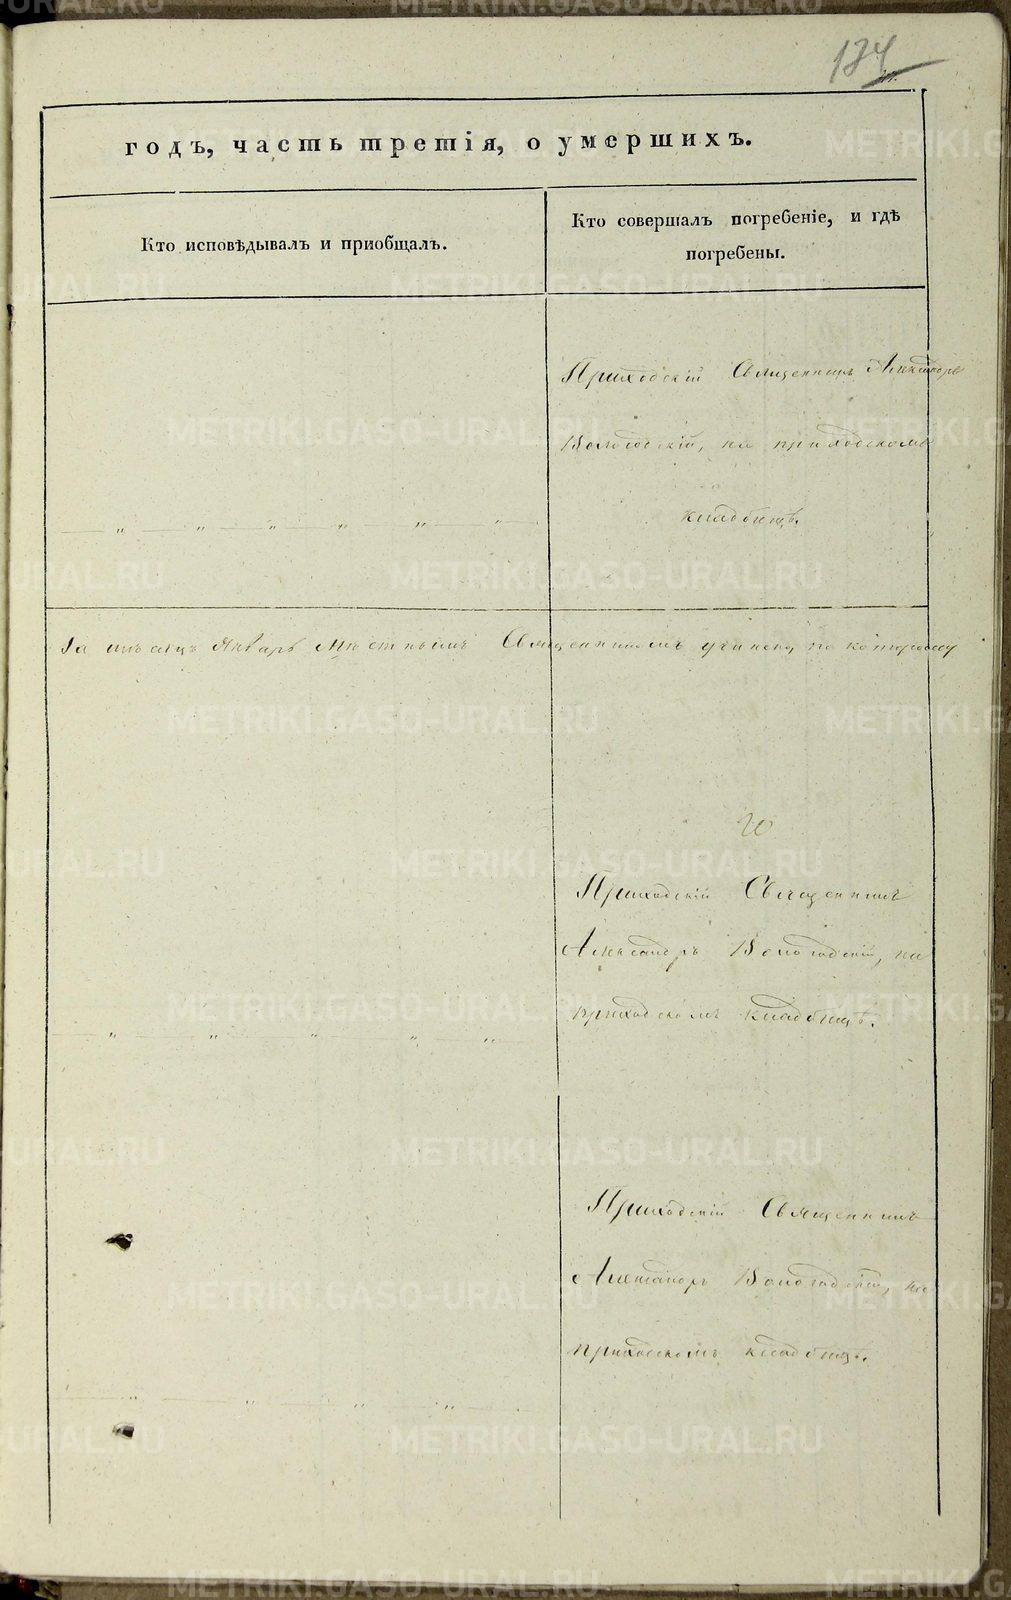 184
годъ, часть третія, о умершихъ.
Кто исповѣдывалъ и пріобщалъ.
Кто совершалъ погребеніе, и гдѣ
погребены.
Приходскій Священникъ Александръ
Вологодскій, на приходскомъ
кладбищѣ.
За мѣсяцъ Январь мѣстнымъ Священникомъ по которому
Приходскій Священникъ
Александръ Вологодскій, на
приходскомъ кладбищѣ.
Приходскій Священникъ
Александръ Вологодскій, на
приходскомъ кладбищѣ.
METRIKI.GASO-URAL.RU